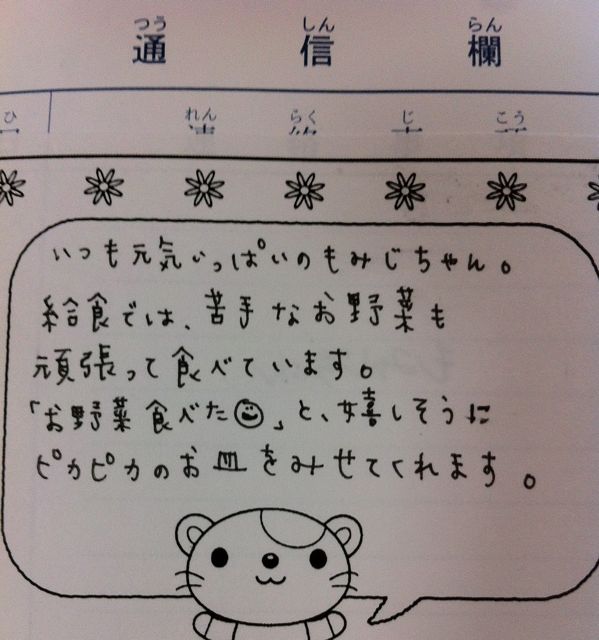 つう しん らん
通 信 欄
ひ れん らく じ こう
いつも元気いっぱいのもみじちゃん。
給食では、苦手なお野菜も
頑張って食べています。
「お野菜食べた☺」と、嬉しそうに
ピカピカのお皿をみせてくれます。